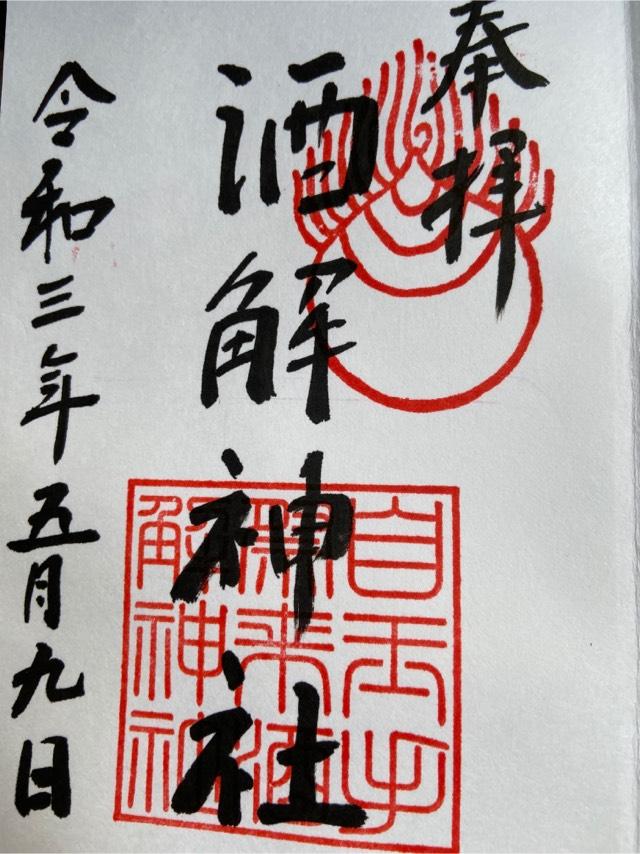 奉拝
酒解神社
令和三年五月九日
自玉手
祭来酒
解神社